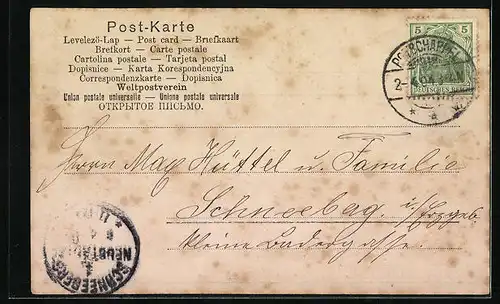 Post-Karte
Levelező-Lap — Post card — Briefkaart
Brefkort — Carte postale
Cartolina postale — Tarjeta postal
Dopisnice — Karta Korespondencyjna
Correspondenzkarte — Dopisnica
Weltpostverein
Union postale universelle — Unione postale universale
ОТКРЫТОЕ ПИСЬМО.
5 5
POTSCHAPPEL
2-
* a
Herrn Max Hüttel u. Familie
Schneebag. i/Erzgeb
kleine Badergasse.
SCHNEEBERG-
NEUSTÄDTEL